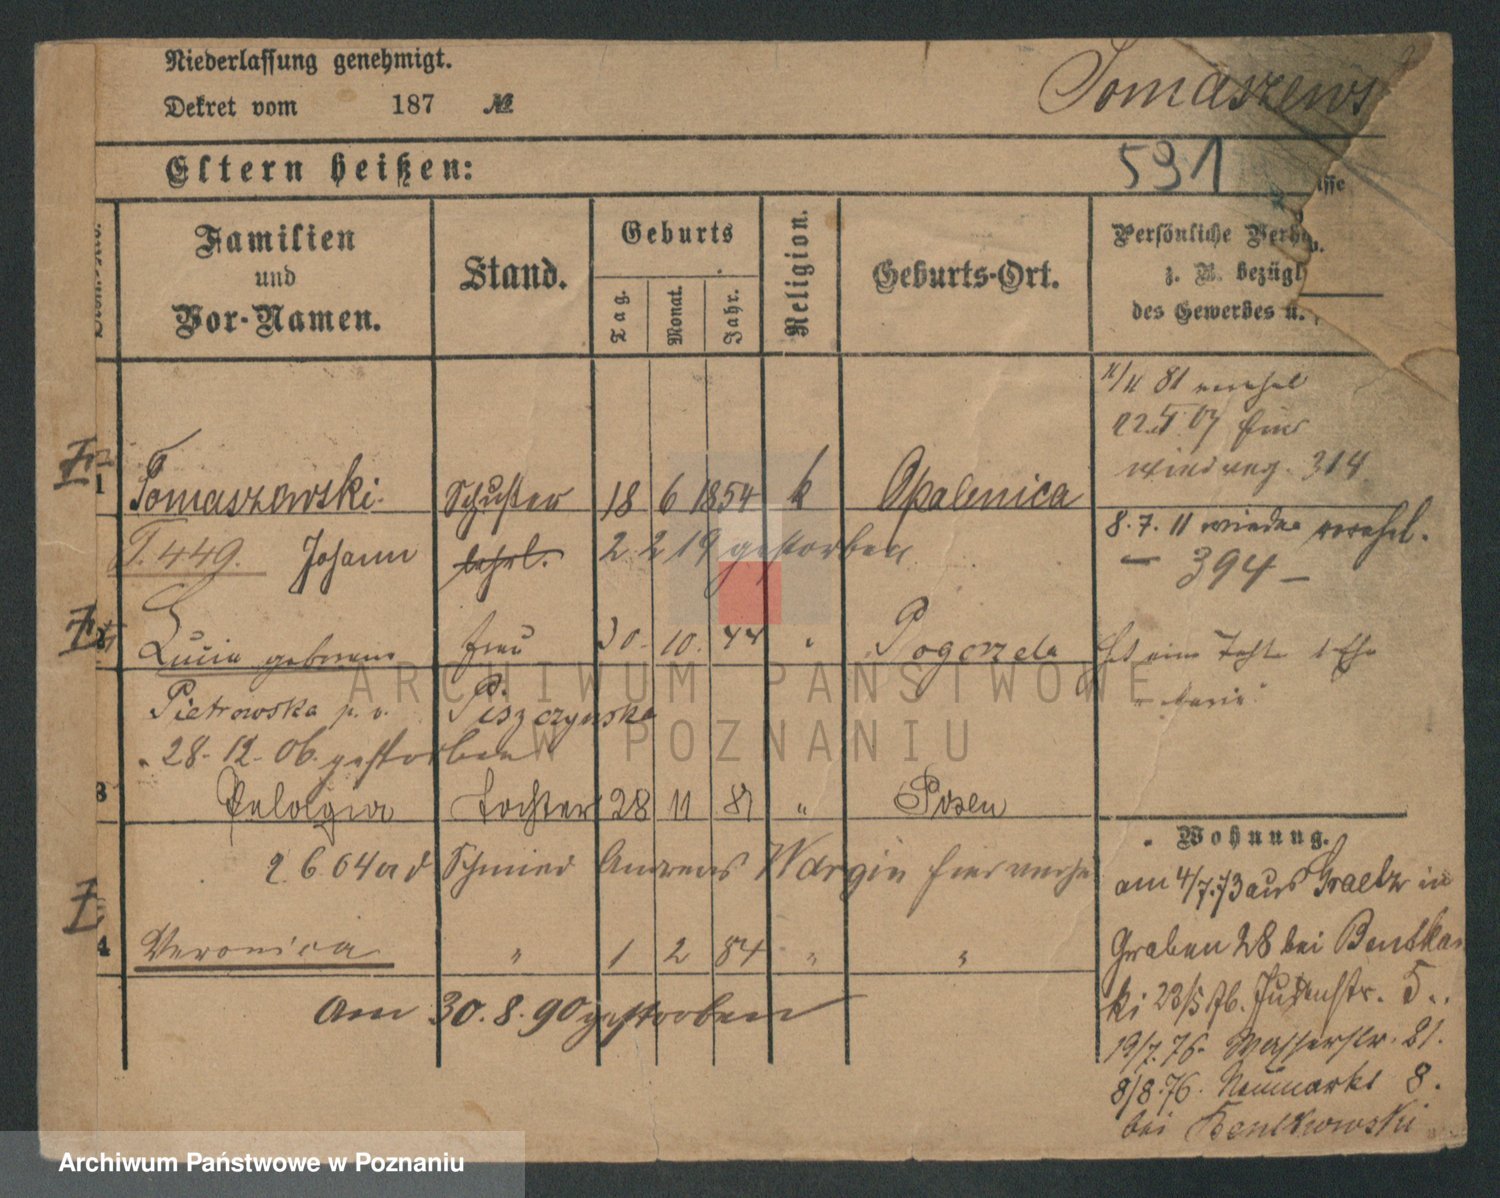 Niederlassung genehmigt.
Dekret vom 187 №
Tomaszews
Eltern heißen:
591
isse
Familien
und
Vor-Namen.
Stand.
Geburts
Tag.
Monat.
Jahr.
Religion.
Geburts-Ort.
Persönliche Verh
z. B. bezügl
des Gewerbes u.
81
07
314
1 Tomaszewski Schuster 18 6 1854 k Opalenica
T. 449. Johann 2 2 19 gestorben
8. 7. 11
— 394 —
Lucia geborene Frau 30. 10. 44 " Pogorzela
Pietrowska p. v. Piszczynska
28. 12. 06. gestorben
3 Pelagia Tochter 28 11 81 " Posen
2 6 04 Schmied Andreas Wargin
Wohnung.
4 Veronica " 1 2 84 " "
am 30. 8. 90 gestorben
am 4/7.73 aus Graetz in
Graben 28 bei Bentkow
ki 23/5 76. Judenstr. 5.
19/7. 76. Wasserstr. 21.
8/8.76. Neumarkt 8.
bei Bentkowski
ARCHIWUM PAŃSTWOWE
W POZNANIU
Archiwum Państwowe w Poznaniu